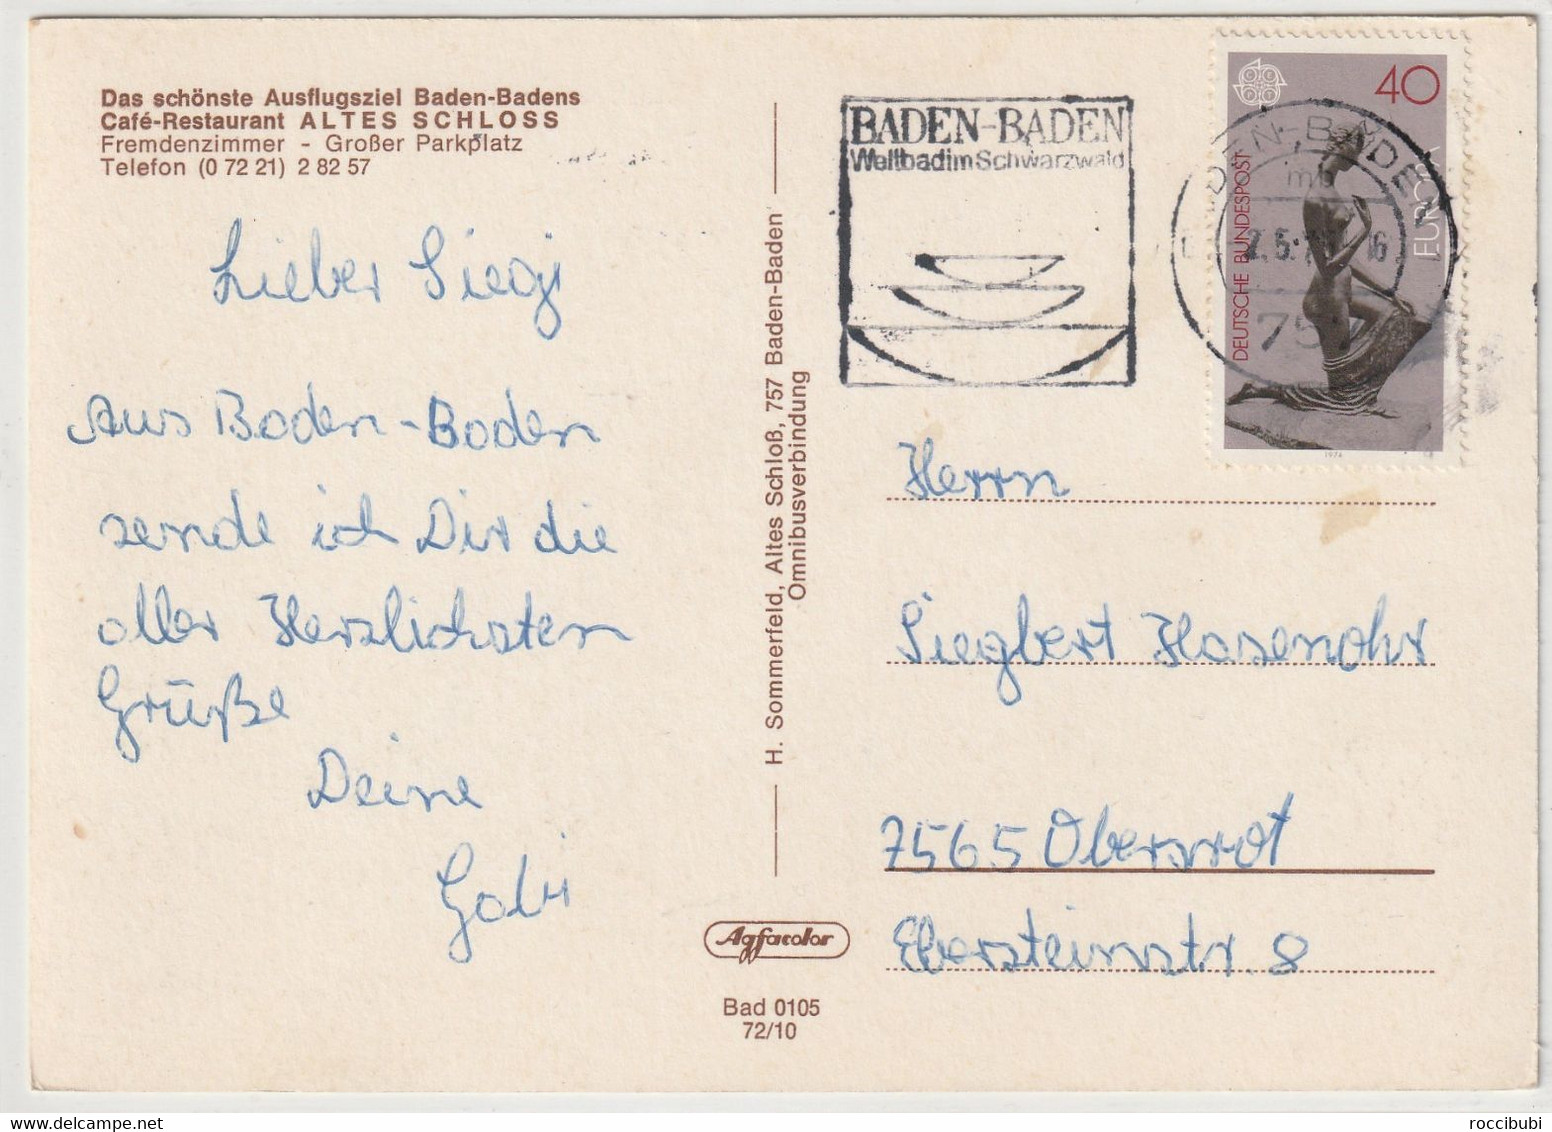 Das schönste Ausflugsziel Baden-Badens
Café-Restaurant ALTES SCHLOSS
Fremdenzimmer - Großer Parkplatz
Telefon (0 72 21) 2 82 57
Lieber Siegi
Aus Baden-Baden
sende ich Dir die
aller Herzlichsten
Grüße
Deine
Gabi
H. Sommerfeld, Altes Schloß, 757 Baden-Baden
Omnibusverbindung
Agfacolor
Bad 0105
72/10
BADEN-BADEN
Weltbad im Schwarzwald
40
DEUTSCHE BUNDESPOST
EUROPA
1974
DEN-BADEN
mb
2.5.7
16
757
Herrn
Siegbert Hasenohr
7565 Obersrot
Ebersteinstr. 8
roccibubi